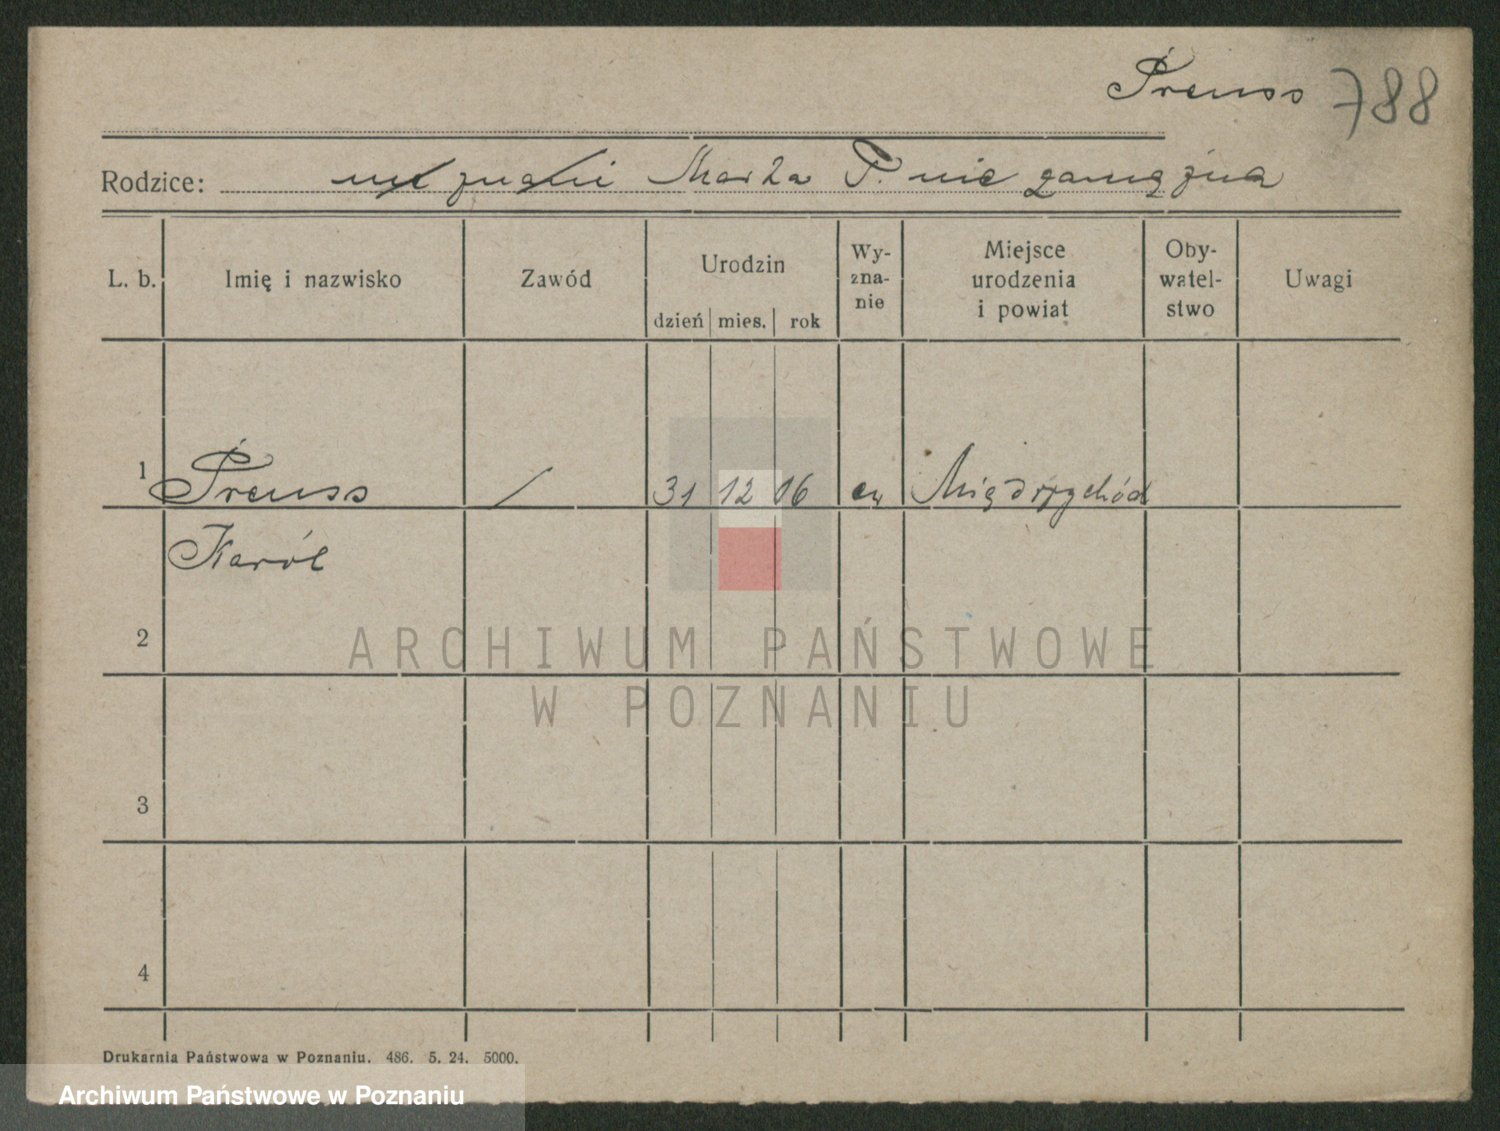 Preuss 788
Rodzice: nie znani Marta P. nie zamężna
L. b. Imię i nazwisko Zawód Urodzin dzień mies. rok Wy-
zna-
nie Miejsce
urodzenia
i powiat Oby-
watel-
stwo Uwagi
1 Preuss / 31 12 06 ew Międzychód
Karól
2
ARCHIWUM PAŃSTWOWE
W POZNANIU
3
4
Drukarnia Państwowa w Poznaniu. 486. 5. 24. 5000.
Archiwum Państwowe w Poznaniu